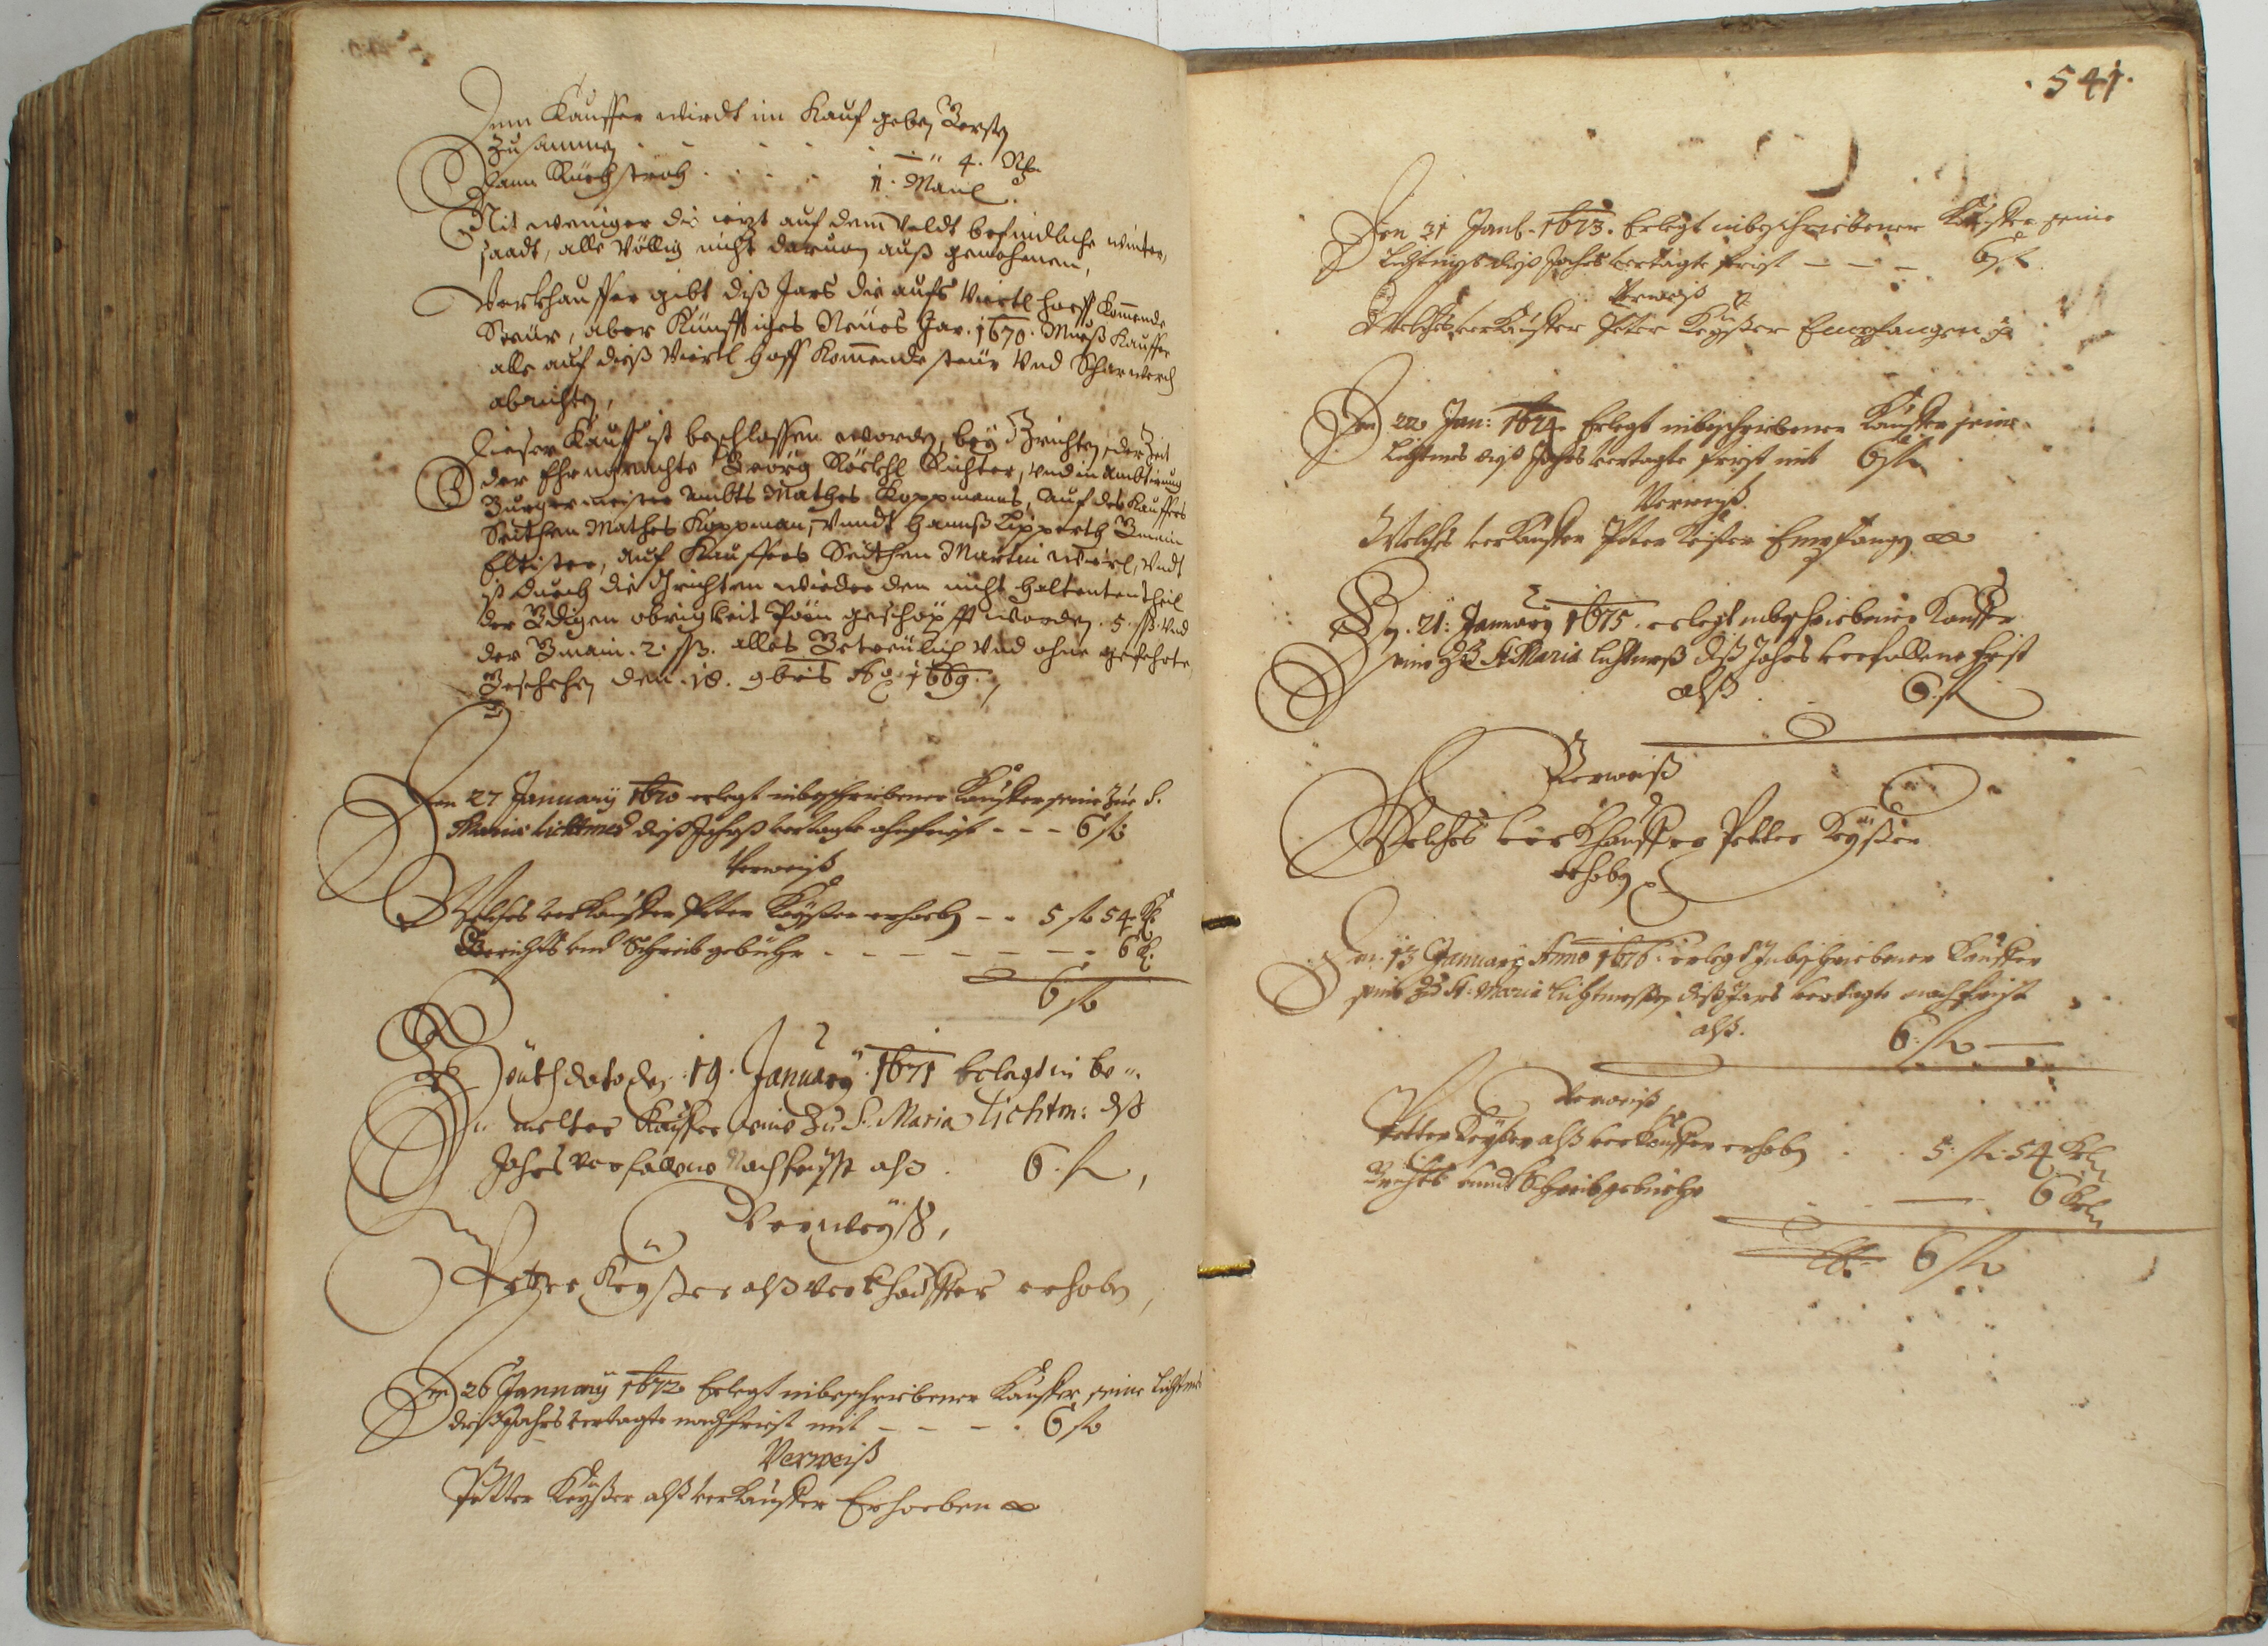 Dem Kauffer wirdt im Kauf geben Gersten
Zusammen . . . . . 4. Np.
Dann Rückstroh . . . . 1. Mane
Nit weniger die iezt auf dem Veldt befindliche winter
saadt, alles Völlig nicht daruon auß genohmen,
Verkhauffer gibt diß Jars die aufs Viertl hoeff kommende
Steur, aber Künfftiges Neues Jar. 1670. Mueß Kauffer
alle auf diß Viertl hoff kommende steur Vnd Scharwerch
abrichten,
Dieser Kauff ist beschlossen worden, bey Grichten der Zeit
der Ehrngeachte Georg Röckhl Richter, vnd in Ambtirung
Burgermeister Ambts Mathes Koppmanns, auf des Kauffers
Seithen Mathes Koppman, Vnndt Hannß Lipperth Gmain
Eltister, auf Kauffers Seithen Martin Wirl, Vndt
ist durch die Grichten wieder den nicht haltenten theil
der Gdigen obrigkeit Pöen geschöpfft worden. 5. ßß. Vnd
der Gmain. 2. ßß. alles Getreulich Vnd ohne gefehrte
Geschehen den. 18. 9bris Ao. 1669.
Den 27 January 1670 erlegt inbeschriebener Kauffer seine Zue S.
Maria lichtmes diß Jahrß vertagte ahnfrist - - - 6 fl:
Verweiß
Welches Verkauffer Peter Keyßer erhoben - - 5 fl 54 Kr
Gerichts vnd Schreibgebühr - - - - - - 6 Kr.
6 fl
Heuth dato den. 19. January. 1671 Erlegt in be-
melter Kauffer seine Zu S. Maria lichtm: dß
Jahrs Verfallene Nachfrist alß . 6. fl,
Verweyß,
Petter Keyßer alß Verkhauffer erhoben,
Den 26 January 1672 Erlegt inbeschriebener Kauffer seine lichtmes
diß Jahrs vertagte nachfrist mit - - - . 6 fl
Verweiß
Petter Keyßer alß verkauffer Erhoeben
. 541.
Den 31 Janu. 1673. Erlegt inbeschriebener Kauffer seine
Lichtmes diß Jahrs vertagte frist - - - 6 fl
Verweiß
Welches verkauffer Peter Keyßer Empfangen
Den 22 Jan: 1674. Erlegt inbeschriebener Kauffer seine
Lichtmes diß Jahrs vertagte frist mit 6 fl
Verweiß.
Welches verkauffer Peter Keißer Empfangen
Den. 21: January 1675. erlegt inbeschriebener Kauffer
seine Zu St Maria lichtmeß diß Jahrs verfallene frist
alß . 6. fl
Verweiß
Welches verkhauffer Petter Keyßer
erhoben
Den. 13 January Anno 1676. erlegt Inbeschriebener Kauffer
seine Zu St: Maria lichtmeßen diß Jars vertagte nachfrist
alß. 6. fl
Verweiß
Petter Keyßer alß verkauffer erhoben . . 5. fl. 54 Krl
Grichts vnndt Schreibgebüehr . . 6 Krl
6 fl